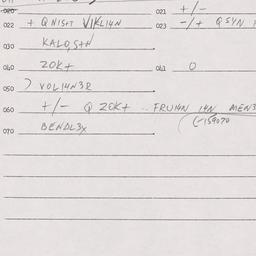 020 021 +/-
022 + QNISH VIKL14N 023 -/+ QSYN
030 KALO,S+H
040 ZOK+ 041 0
050 ) VOL14N3R
060 +/- Q ZOK+ .. FRU14N 14N MEN3
(-159070
070 BENDL3X